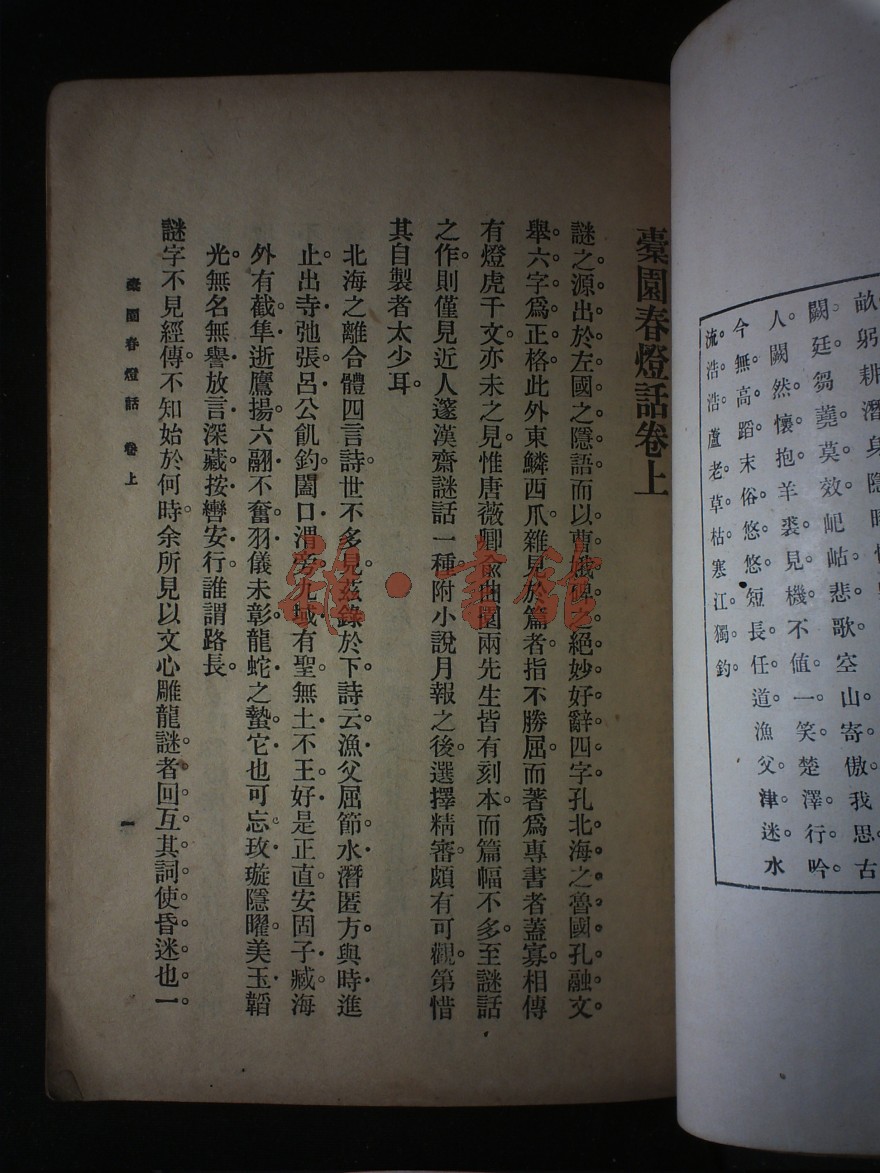 畝躬耕潛身隱
闕廷芻蕘莫效屺岵悲歌空山寄傲我思古
人闕然懷抱羊裘見機不值一笑楚澤行吟
今無高蹈末俗悠悠短長任道漁父津迷水
流浩浩蘆老草枯寒江獨釣
橐園春燈話卷上
謎之源出於左國之隱語而以曹娥碑之絕妙好辭四字孔北海之魯國孔融文
舉六字爲正格此外東鱗西爪雜見於篇者指不勝屈而著爲專書者蓋寡相傳
有燈虎千文亦未之見惟唐薇卿俞曲園兩先生皆有刻本而篇幅不多至謎話
之作則僅見近人邃漢齋謎話一種附小說月報之後選擇精審頗有可觀第惜
其自製者太少耳
北海之離合體四言詩世不多見茲錄於下詩云漁父屈節水潛匿方與時進
止出寺弛張呂公飢釣闔口渭旁九域有聖無土不王好是正直安固子臧海
外有截隼逝鷹揚六翮不奮羽儀未彰龍蛇之蟄它也可忘玫璇隱曜美玉韜
光無名無譽放言深藏按轡安行誰謂路長
謎字不見經傳不知始於何時余所見以文心雕龍謎者回互其詞使昏迷也一
橐園春燈話 卷上
一
雜·書館